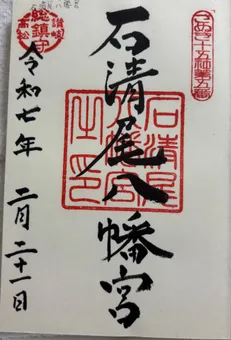 石清尾八幡宮
讃岐
総鎮守
高松
石清尾
八幡宮
之印
石清尾八幡宮
令和七年
二月二十一日